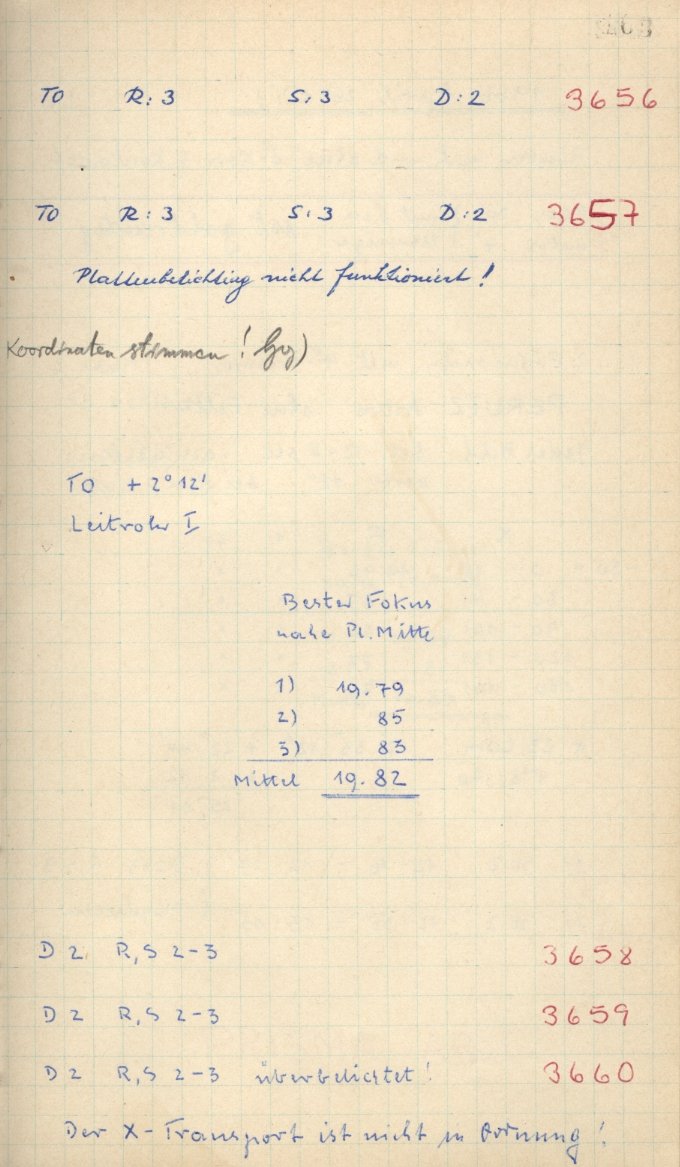 TO R: 3 S: 3 D: 2 3656
TO R: 3 S: 3 D: 2 3657
Plattenbelichting nicht funktioniert!
Koordinaten stimmen!
TO + 2° 12'
Leitrohr I
Bester Fokus
nahe Pl. Mitte
1) 19.79
2) 85
3) 83
Mittel 19.82
D 2 R, S 2-3 3658
D 2 R, S 2-3 3659
D 2 R, S 2-3 überbelichtet! 3660
Der X-Transport ist nicht in Ordnung!